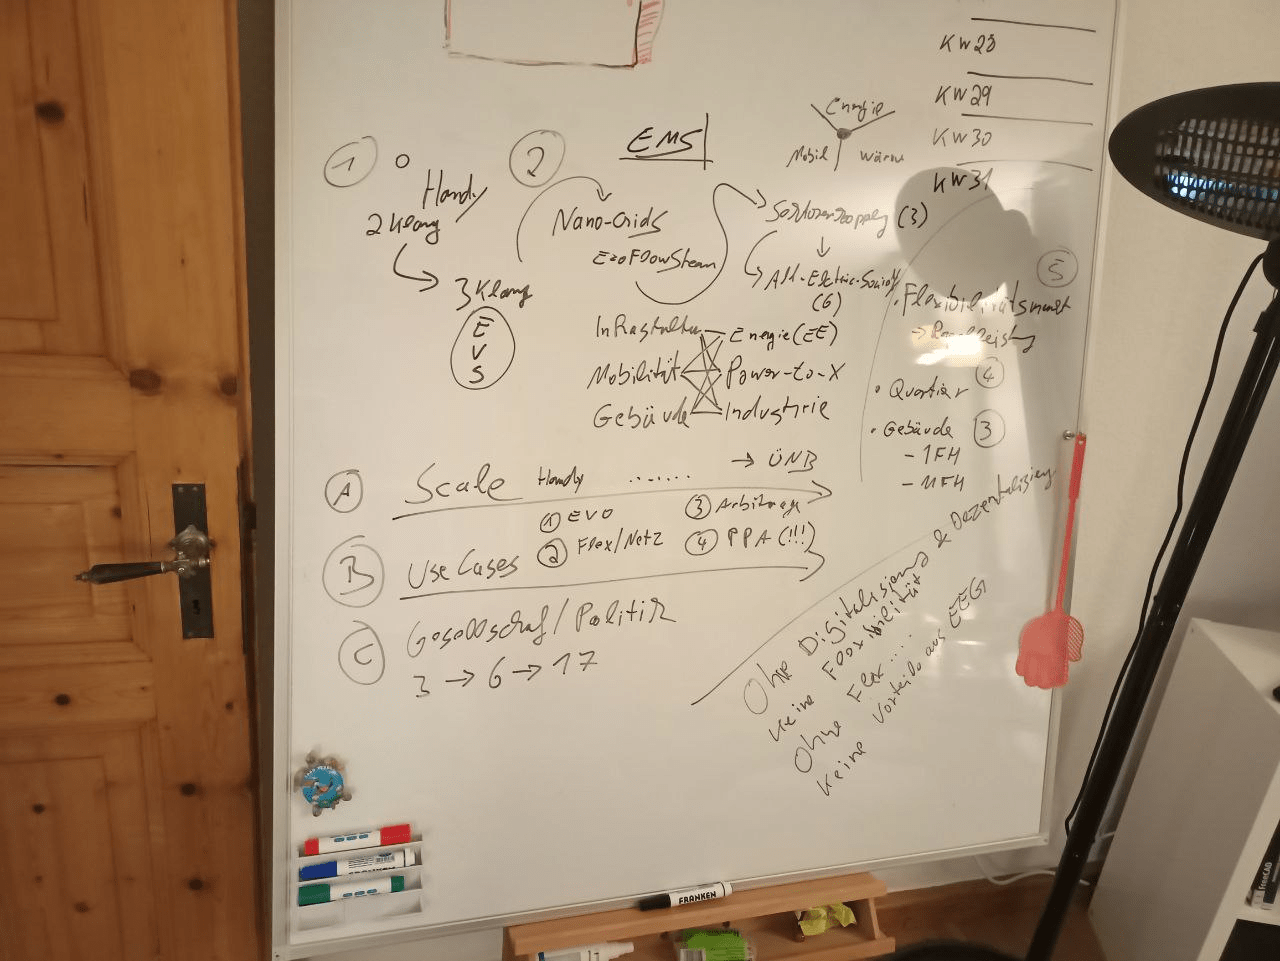 KW28
KW29
KW30
KW31
EMS
Energie
Mobil
Wärme
1
Handy
2Klang
3Klang
E
V
S
2
Nano-Grids
EzoFlowStream
(3)
All-Electric-Society
(6)
Infrastuktur
Energie(EE)
Mobilität
Power-to-X
Gebäude
Industrie
5
• Flexibilitätsmarkt
→ Regelleistung
4
• Quartier
• Gebäude 3
- 1FH
- MFH
A Scale Handy ....... → ÜNB
B UseCases
1 EVO
2 Flex/Netz
3 Arbitrage
4 PPA (!!!)
C Gesellschaf/Politik
3 → 6 → 17
Ohne Digitalisierung & Dezentralisierung
keine Flexibilität
Ohne Flex...
keine Vorteile aus EEG
FRANKEN
FreeCAD